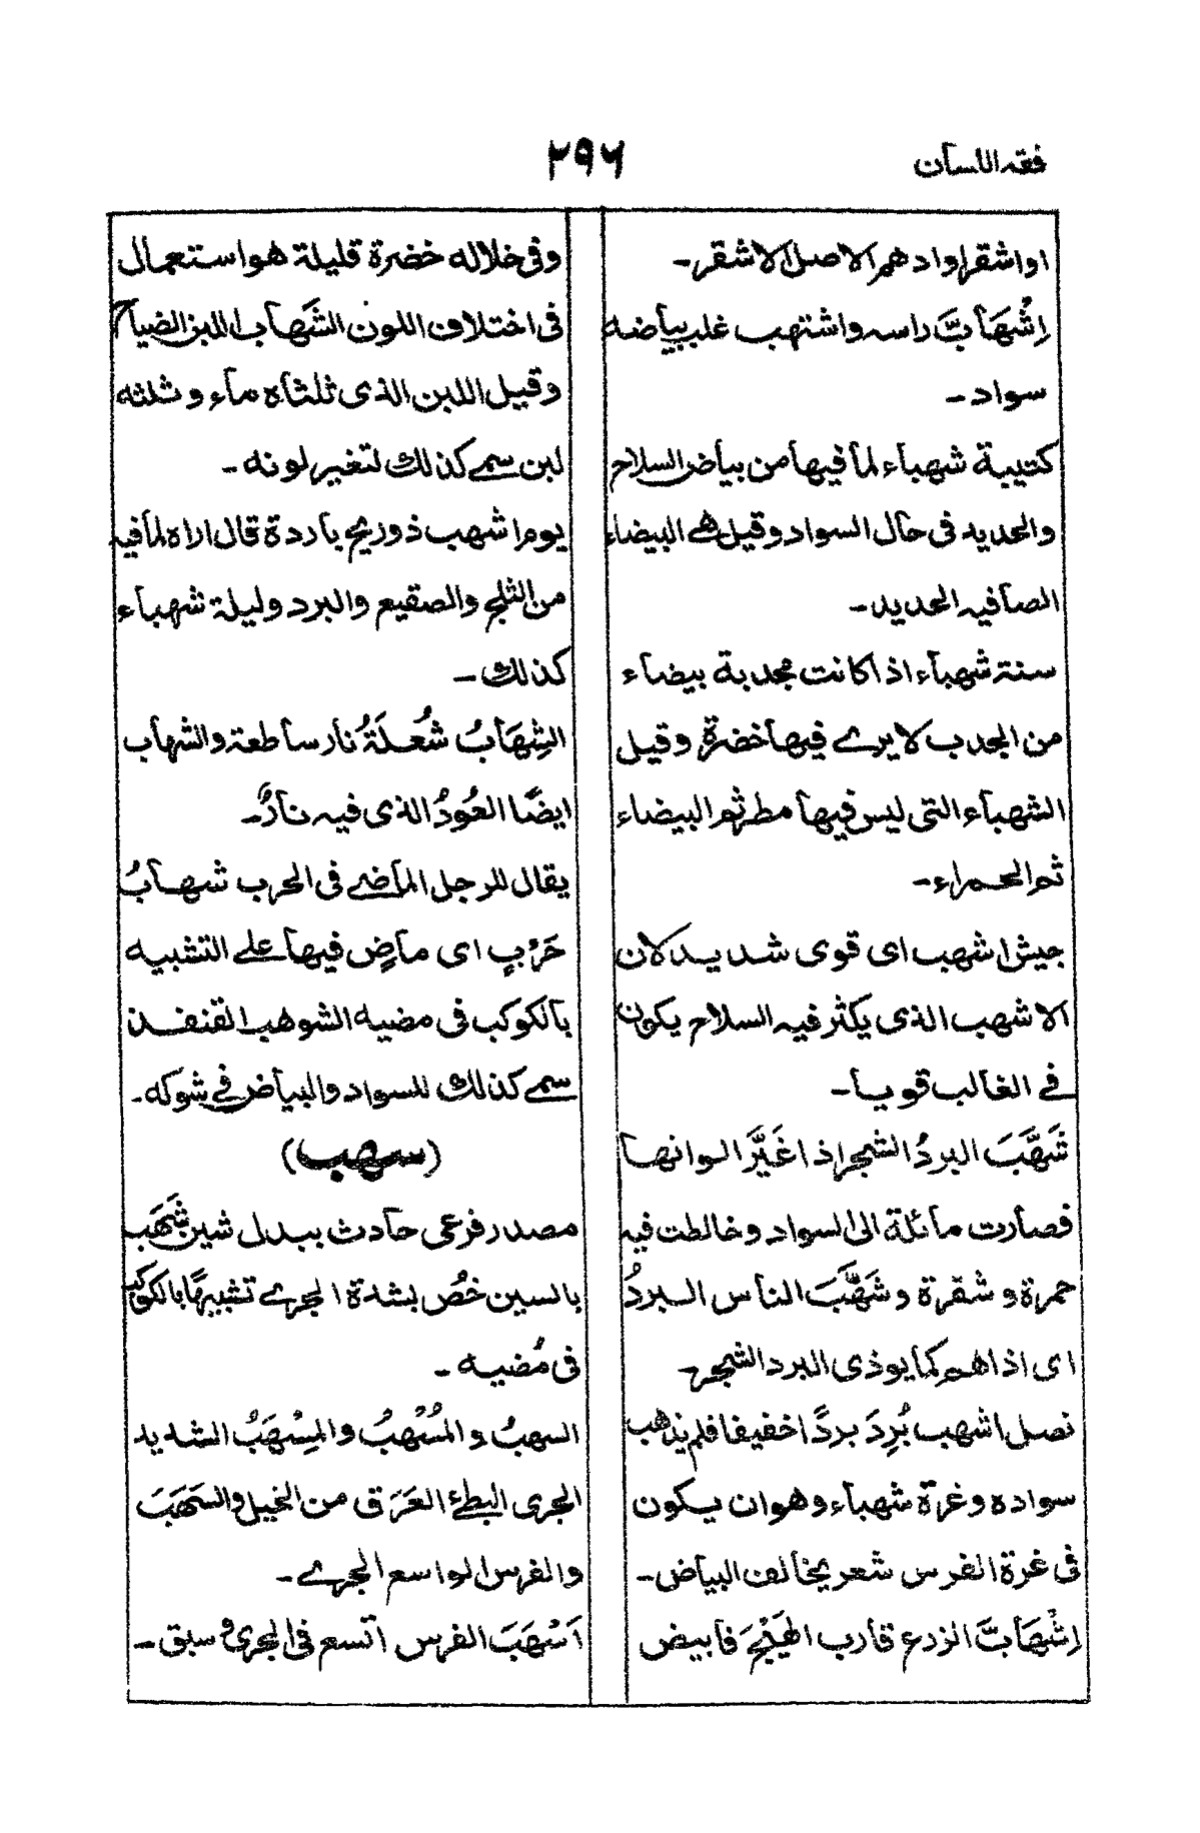 فقہ اللسان
۲۹۶
او اشقر او ادهم الاصل الاشقر۔
اِشْهَابَّ راسه واشتهب غلب بياضه
سواد۔
كتيبة شهباء لما فيها من بياض السلاح
والحديد في حال السواد وقيل هي البيضاء
الصافيه الحديد۔
سنة شهباء اذا كانت مجدبة بيضاء
من الجدب لا يرے فيها خضرة وقيل
الشهباء التي ليس فيها مطر ثم البيضاء
ثم الحمراء۔
جيش اشهب اى قوى شديد لان
الاشهب الذى يكثر فيه السلاح يكون
في الغالب قويا۔
شَهَّبَ البردُ الشجر اذا غَيَّرَ الوانها
فصارت مائلة الى السواد وخالطت فيه
حمرة و شقرة و شَهَّبَ الناس البردُ
اى اذاهم كما يوذى البرد الشجر۔
نصل اشهب بُرِدَ بردًا خفيفا فلم يذهب
سواده وغرة شهباء وهوان يكون
فى غرة الفرس شعر يخالف البياض۔
اِشْهَابَّ الزرع قارب الهَيْجَ فابيض
وفى خلاله خضرة قليلة هو استعمال
فى اختلاف اللون الشَهاب اللبن الضياح
وقيل اللبن الذى ثلثاه ماء و ثلثه
لبن سمے كذلك لتغير لونه۔
يوم اشهب ذو ريح باردة قال اراه لما فيه
من الثلج والصقيع والبرد وليلة شهباء
كذلك۔
الشِهَابُ شُعلَةُ نار ساطعة والشهاب
ايضًا العُودُ الذى فيه نارٌ۔
يقال للرجل الماضے فى الحرب شهابُ
حَرْبٍ اى ماضٍ فيها علے التشبيه
بالكوكب فى مضيه الشوهب القنفذ
سمے كذلك للسواد والبياض فے شوكه۔
(سهب)
مصدر فرعى حادث ببدل شين شَهَب
بالسين خُصّ بشدة الجرے تشبيهًا بالكوكب
فى مُضيه۔
السهبُ والمُسْهبُ والمِسْهَبُ الشديد
الجرى البطئ العَرَق من الخيل والسَهَبَ
والفرس الواسع الجرے۔
اَسْهَبَ الفرس اتسع فى الجرى و سبق۔